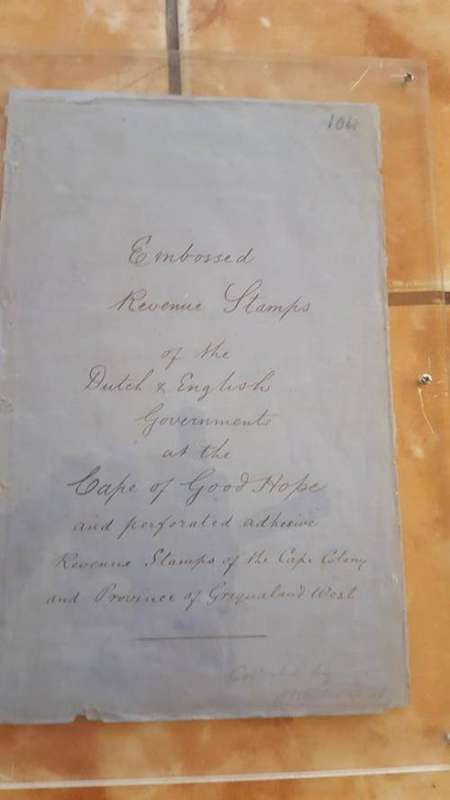 Embossed
Revenue Stamps
of the
Dutch & English
Governments
at the
Cape of Good Hope
and perforated adhesive
Revenue Stamps of the Cape Colony
and Province of Griqualand West
by